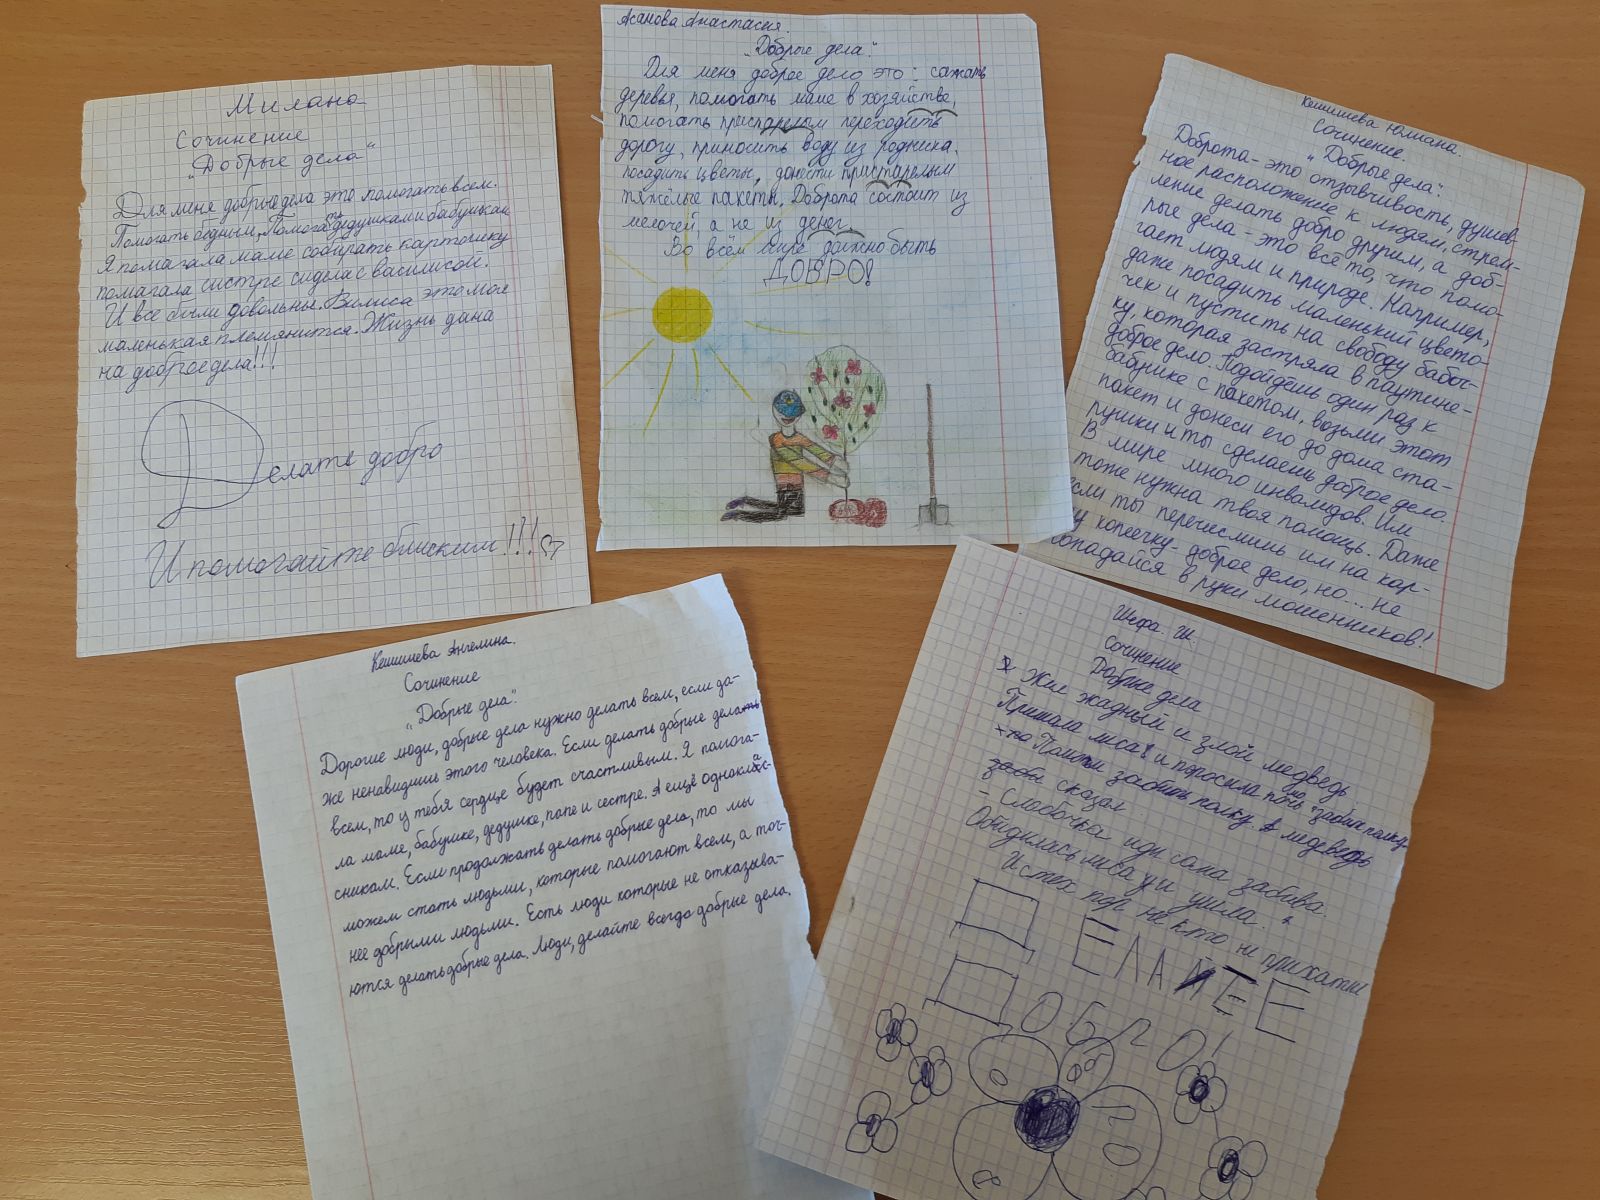 Милана
Сочинение
„Добрые дела“
Для меня добрые дела это помогать всем.
Помогать бедным, Помогать дедушкам и бабушкам
Я помагала маме собирать картошку
помагала систре сидела с василисой.
И все были довольны. Вилиса это моя
маленькая племянится. Жизнь дана
на доброе дела!!!
Делате добро
И помогайте близким!!!
Асанова Анастасия.
„Добрые дела“.
Для меня доброе дело это: сажать
деревья, помогать маме в хозяйстве,
помогать престарелым переходить
дорогу, приносить воду из родника,
посадить цветы, донести престарелым
тяжёлые пакеты. Доброта состоит из
мелочей, а не из денег.
Во всём мире должно быть
ДОБРО!
Кешишева Юлиана.
Сочинение.
„Добрые дела“.
Доброта - это отзывчивость, душев-
ное расположение к людям, стрем-
ление делать добро другим, а доб-
рые дела - это всё то, что помо-
гает людям и природе. Например,
даже посадить маленький цвето-
чек и пустить на свободу бабоч-
ку, которая застряла в паутине -
доброе дело. Подойдёшь один раз к
бабушке с пакетом, возьми этот
пакет и донеси его до дома ста-
рушки и ты сделаешь доброе дело.
В мире много инвалидов. Им
тоже нужна твоя помощь. Даже
если ты перечислишь им на кар-
у копеечку - доброе дело, но... не
попадайся в руки мошенников!
Кешишева Ангелина.
Сочинение
„Добрые дела“.
Дорогие люди, добрые дела нужно делать всем, если да-
же ненавидишь этого человека. Если делать добрые дела
всем, то у тебя сердце будет счастливым. Я помога-
ла маме, бабушке, дедушке, папе и сестре. А ещё одноклас-
сникам. Если продолжать делать добрые дела, то мы
можем стать людьми, которые помогают всем, а точ-
нее добрыми людьми. Есть люди которые не отказыва-
ются делать добрые дела. Люди, делайте всегда добрые дела.
Ш.
Сочинение
Добрые дела
Жил жадный и злой медведь.
Пришла лиса и попросила забить полку.
Помоги забить полку. А медведь
сказал.
- Слабочка иди сама забивай.
Обиделась лиса и ушла.
И с тех пор не кто не прихатил
ДЕЛАЙТЕ
ДОБРО!